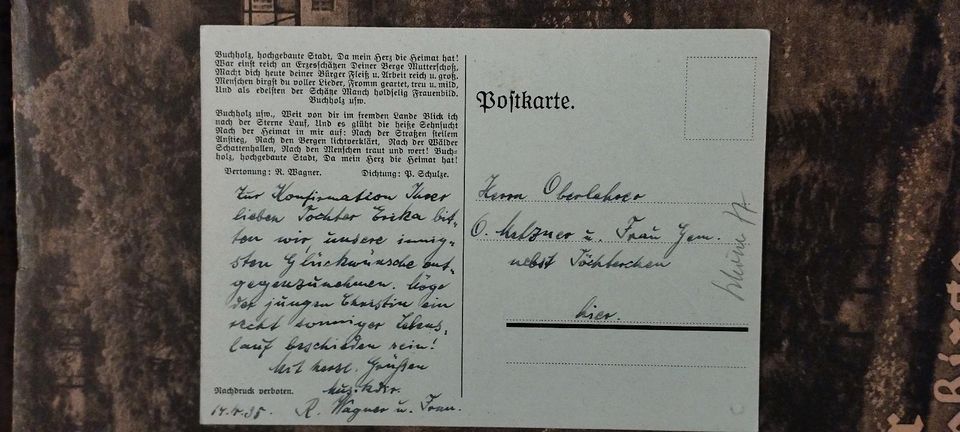 Buchholz, hochgebaute Stadt, Da mein Herz die Heimat hat!
War einst reich an Erzesschätzen Deiner Berge Mutterschoß,
Macht dich heute deiner Bürger Fleiß u. Arbeit reich u. groß.
Menschen birgst du voller Lieder, Fromm geartet, treu u. mild,
Und als edelsten der Schätze Manch holdselig Frauenbild.
Buchholz usw.
Buchholz usw., Weit von dir im fremden Lande Blick ich
nach der Sterne Lauf, Und es glüht die heiße Sehnsucht
Nach der Heimat in mir auf: Nach der Straßen steilem
Anstieg, Nach den Bergen lichtverklärt, Nach der Wälder
Schattenhallen, Nach den Menschen traut und wert! Buch-
holz, hochgebaute Stadt, Da mein Herz die Heimat hat!
Vertonung: R. Wagner. Dichtung: P. Schulze.
Zur Konfirmation Ihrer
lieben Tochter Erika bit-
ten wir, unsere innig-
sten Glückwünsche ent-
gegenzunehmen. Möge
der jungen Christin ein
recht sonniger Lebens-
lauf beschieden sein!
Mit herzl. Grüßen
Musikdir.
R. Wagner u. Frau.
Nachdruck verboten.
14.4.35.
Postkarte.
Herrn Oberlehrer
O. Melzner u. Frau Gem.
nebst Töchterchen
hier.